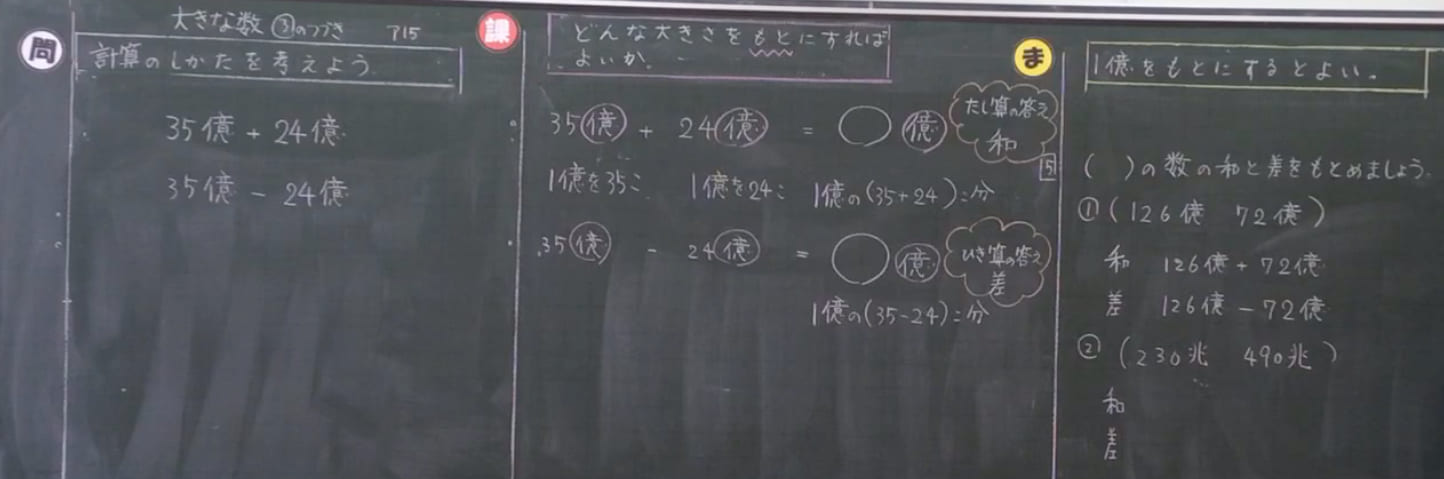 問
大きな数 ③のつづき P15
計算のしかたを考えよう
35億 + 24億
35億 - 24億
課
どんな大きさをもとにすれば
よいか。
35億 + 24億 = ○ 億
たし算の答え
和
1億を35こ 1億を24こ 1億の(35+24)こ分
35億 - 24億 = ○ 億
ひき算の答え
差
1億の(35-24)こ分
ま
1億をもとにするとよい。
5
( )の数の和と差をもとめましょう。
① (126億 72億)
和 126億 + 72億
差 126億 - 72億
② (230兆 490兆)
和
差